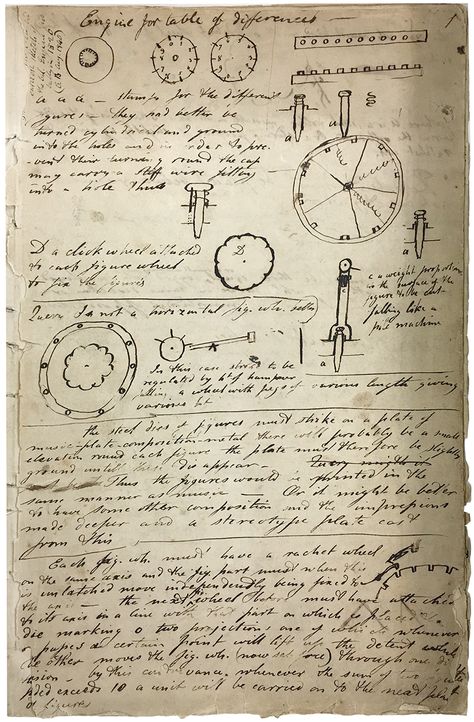 Engine for table of differences
1
a a a — stamps for the different
figures — they had better be
turned cylindrical and ground
into the holes and in order to pre-
-vent their turning round the cap
may carry a stiff wire fitting
into a hole thus
a
a
a
D
D a click wheel attached
to each figure wheel
to fix the figures
c a weight proportion
to the surface of the
figure to be cut
falling like a
pile machine
a
Query Is not a horizontal fig. wh. better
In this case stroke to be
regulated by ht of hammer
falling, a wheel with pegs of various length giving
various ht
the steel dies of figures must strike on a plate of
music-plate-composition-metal there will probably be a small
elevation round each figure the plate must therefore be slightly
ground until these die appear —
Thus the figures would be printed in the
same manner as music — Or it might be better
to have some other composition and the impressions
made deeper and a stereotype plate cast
from this
Each fig. wh. must have a rachet wheel
on the same axis and the fig part must when this
is unlatched move independently being fixed to
the axis — the next wheel must have attached
to its axis in a line with that part on which is placed
die marking 0 two projections one of which whenever
it passes a certain point will left up the detent while
the other moves the fig. wh. (now set free) through one di-
vision — by this contrivance whenever the sum of two
added exceeds 10 a unit will be carried on to the next
of figures